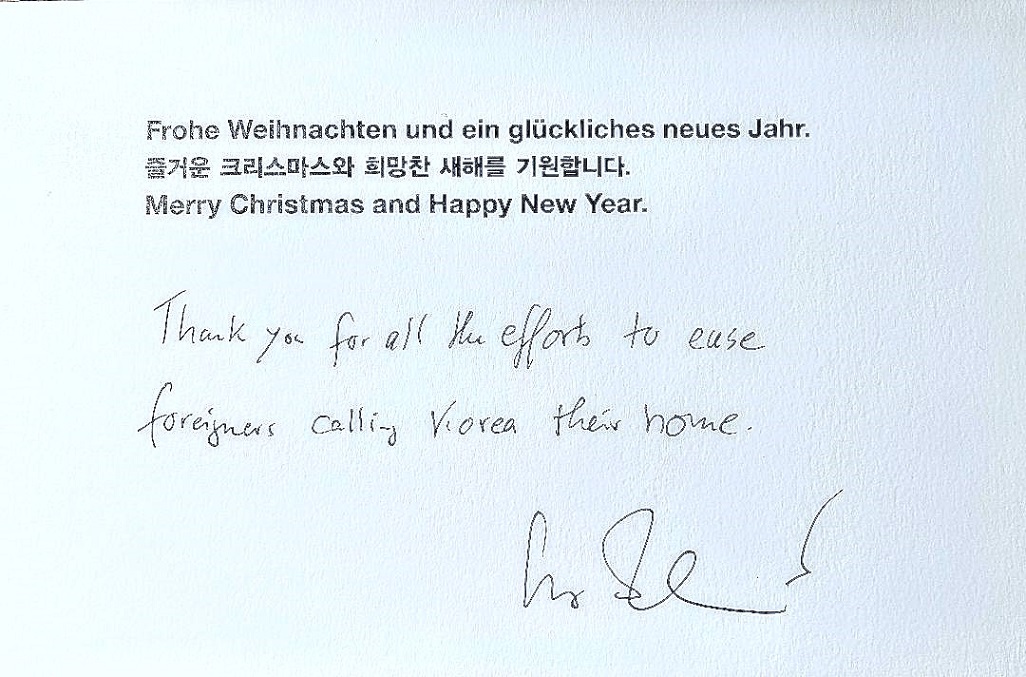 Frohe Weihnachten und ein glückliches neues Jahr.
즐거운 크리스마스와 희망찬 새해를 기원합니다.
Merry Christmas and Happy New Year.
Thank you for all the efforts to ease
foreigners calling Korea their home.